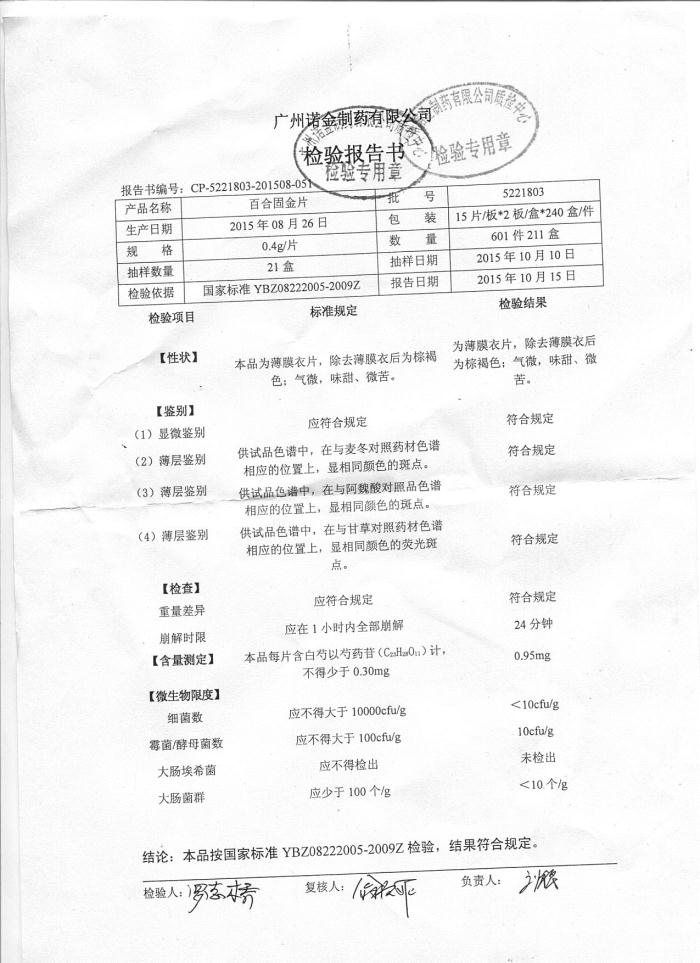 广州诺金制药有限公司
检验报告书
广州诺金制药有限公司质检中心
检验专用章
制药有限公司质检中心
检验专用章
报告书编号：CP-5221803-201508-051
产品名称 百合固金片 批 号 5221803
生产日期 2015 年 08 月 26 日 包 装 15 片/板*2 板/盒*240 盒/件
规 格 0.4g/片 数 量 601 件 211 盒
抽样数量 21 盒 抽样日期 2015 年 10 月 10 日
检验依据 国家标准 YBZ08222005-2009Z 报告日期 2015 年 10 月 15 日
检验项目 标准规定 检验结果
【性状】 本品为薄膜衣片，除去薄膜衣后为棕褐 为薄膜衣片，除去薄膜衣后
色；气微，味甜、微苦。 为棕褐色；气微，味甜、微
苦。
【鉴别】
（1）显微鉴别 应符合规定 符合规定
（2）薄层鉴别 供试品色谱中，在与麦冬对照药材色谱 符合规定
相应的位置上，显相同颜色的斑点。
（3）薄层鉴别 供试品色谱中，在与阿魏酸对照品色谱 符合规定
相应的位置上，显相同颜色的斑点。
（4）薄层鉴别 供试品色谱中，在与甘草对照药材色谱
相应的位置上，显相同颜色的荧光斑 符合规定
点。
【检查】
重量差异 应符合规定 符合规定
崩解时限 应在 1 小时内全部崩解 24 分钟
【含量测定】 本品每片含白芍以芍药苷（C₂₃H₂₈O₁₁）计， 0.95mg
不得少于 0.30mg
【微生物限度】
细菌数 应不得大于 10000cfu/g ＜10cfu/g
霉菌/酵母菌数 应不得大于 100cfu/g 10cfu/g
大肠埃希菌 应不得检出 未检出
大肠菌群 应少于 100 个/g ＜10 个/g
结论：本品按国家标准 YBZ08222005-2009Z 检验，结果符合规定。
检验人： 复核人： 负责人：